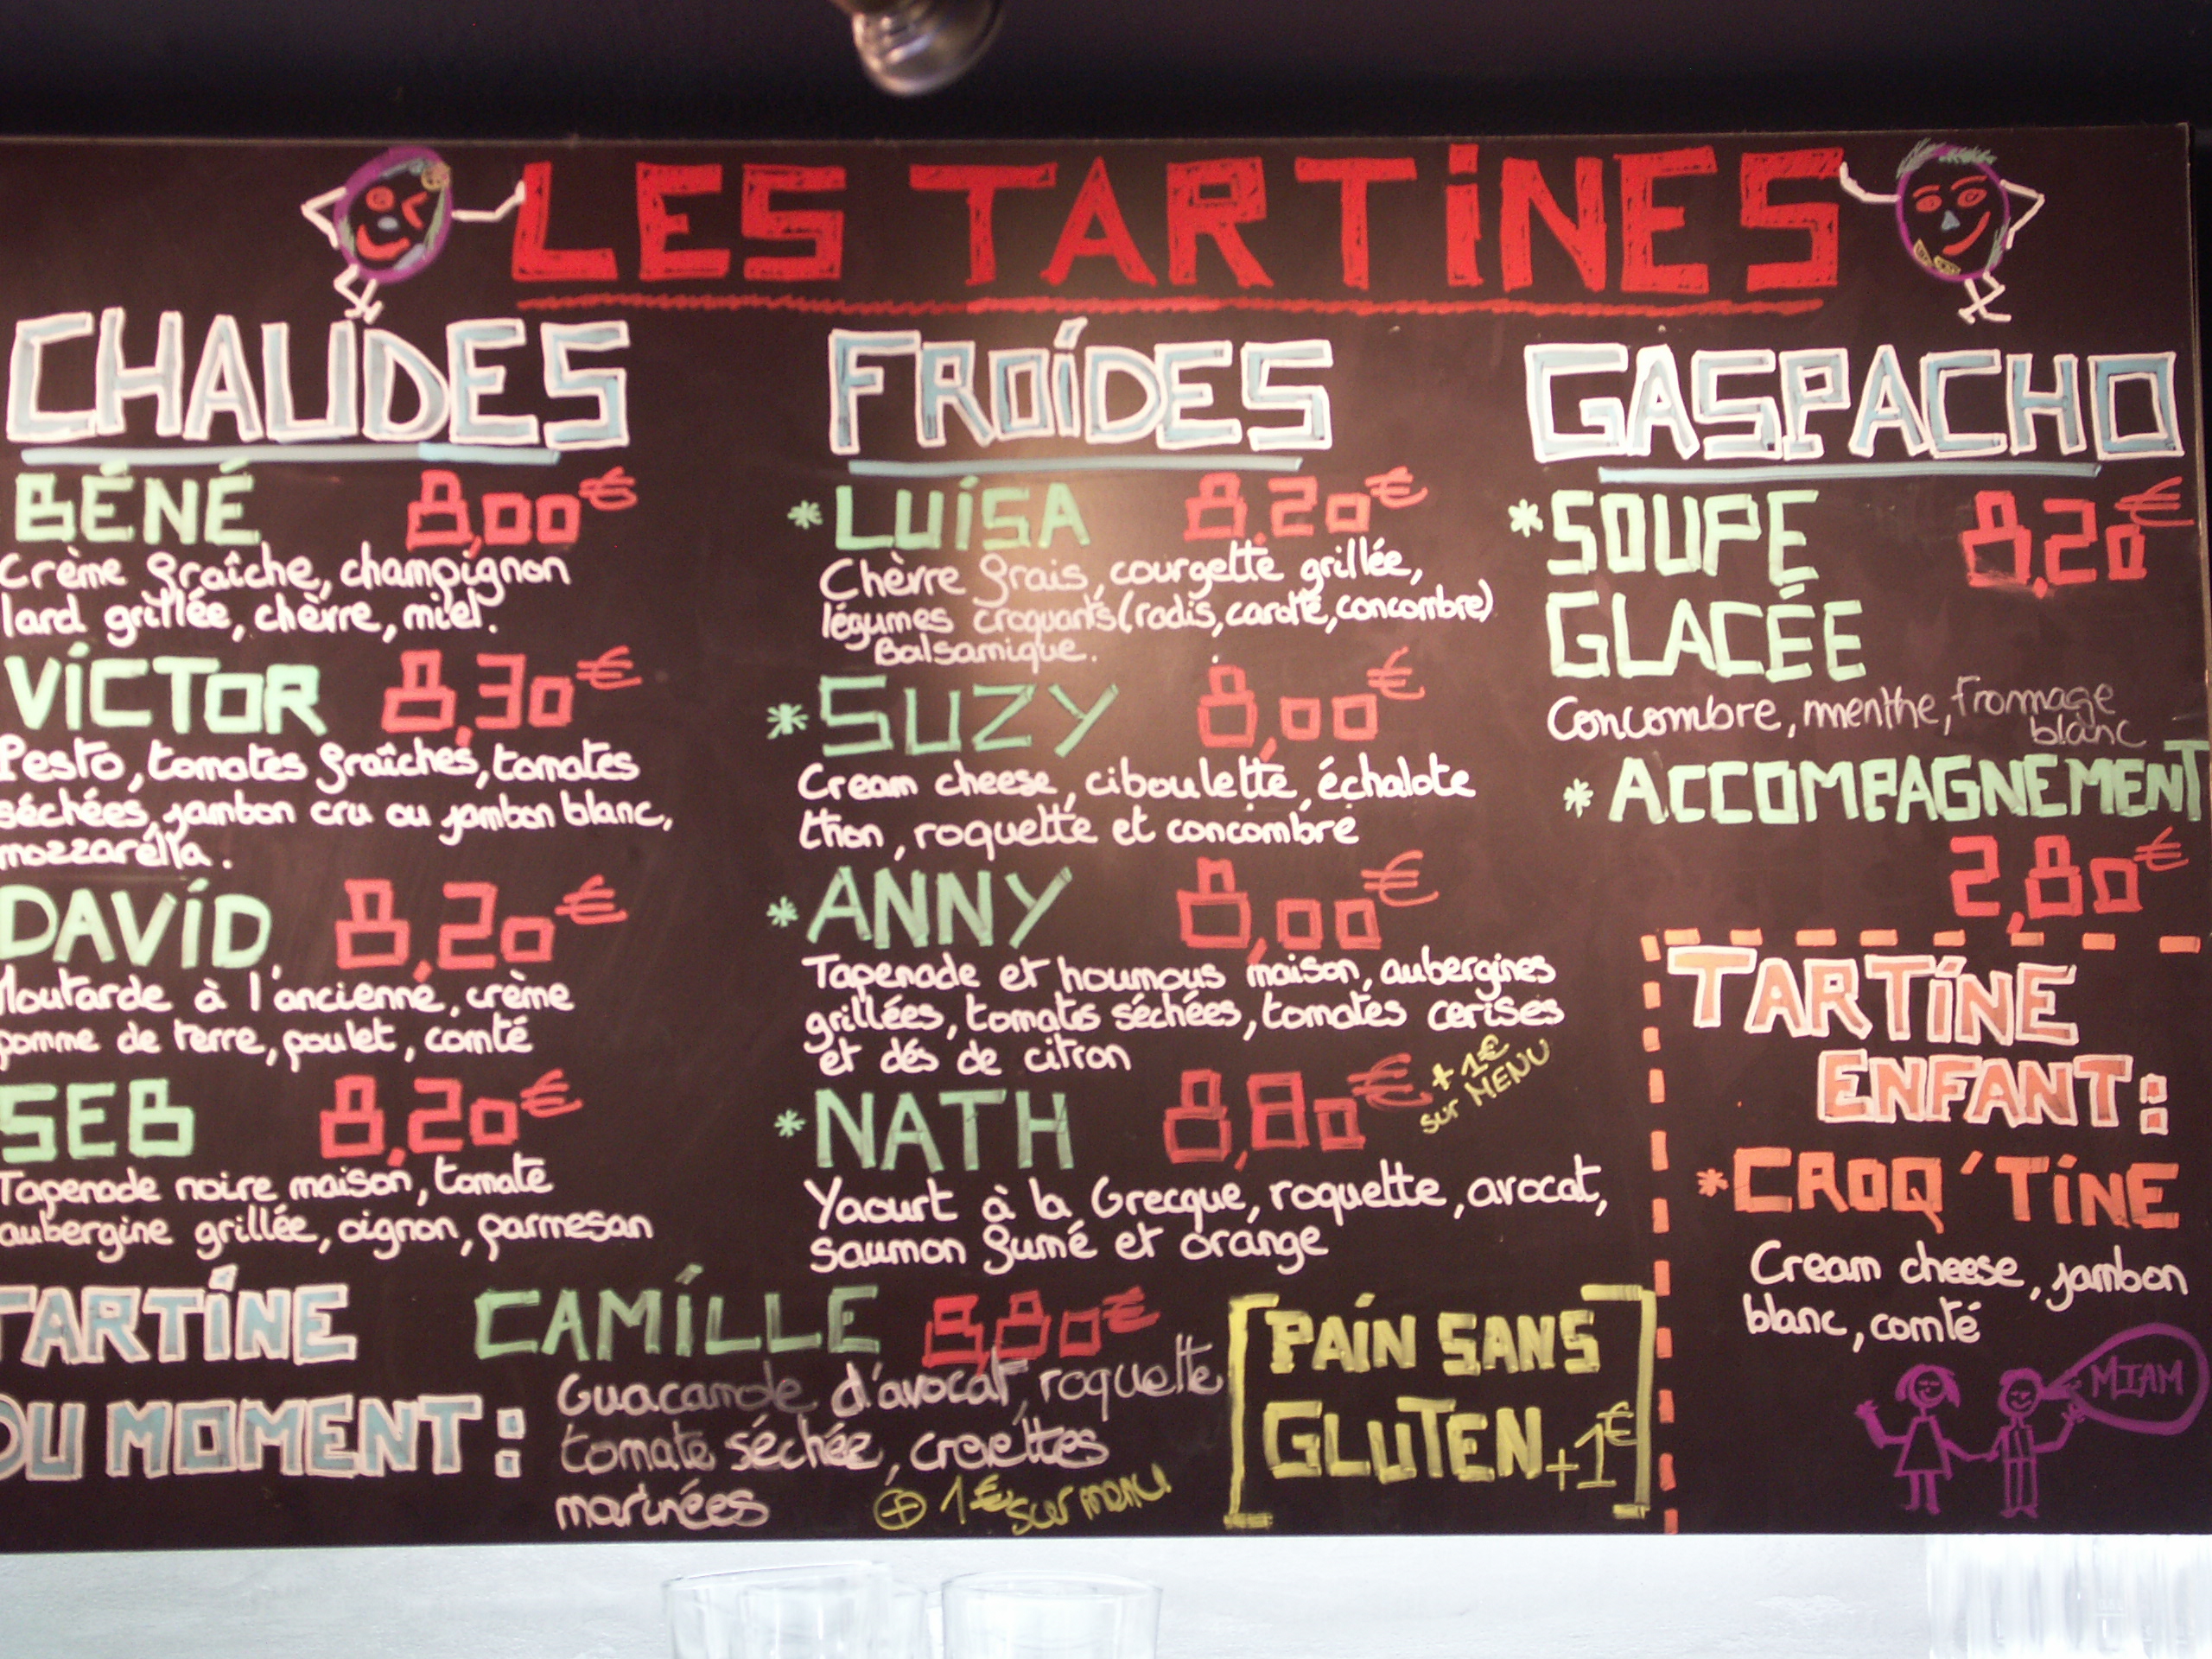 LES TARTINES
CHAUDES
BÉNÉ 8,00€
Crème fraîche, champignon
lard grillée, chèvre, miel.
VICTOR 8,30€
Pesto, tomates fraîches, tomates
séchées, jambon cru ou jambon blanc,
mozzarélla.
DAVID 8,20€
Moutarde à l'ancienne, crème
pomme de terre, poulet, comté
SEB 8,20€
Tapenade noire maison, tomate
aubergine grillée, oignon, parmesan
FROIDES
* LUISA 8,20€
Chèvre frais, courgette grillée,
légumes croquants (radis, carotte, concombre)
Balsamique.
* SUZY 8,00€
Cream cheese, ciboulette, échalote
thon, roquette et concombre
* ANNY 8,00€
Tapenade et houmous maison, aubergines
grillées, tomates séchées, tomates cerises
et dés de citron
* NATH 8,80€ +1€
sur MENU
Yaourt à la Grecque, roquette, avocat,
saumon fumé et orange
GASPACHO
* SOUPE 8,20€
GLACÉE
Concombre, menthe, fromage
blanc
* ACCOMPAGNEMENT
2,80€
TARTINE
ENFANT:
* CROQ'TINE
Cream cheese, jambon
blanc, comté
MIAM
TARTINE
DU MOMENT:
CAMILLE 8,80€
Guacamole d'avocat, roquette
tomate séchée, crevettes
marinées
+ 1€ sur menu
[PAIN SANS
GLUTEN +1€]